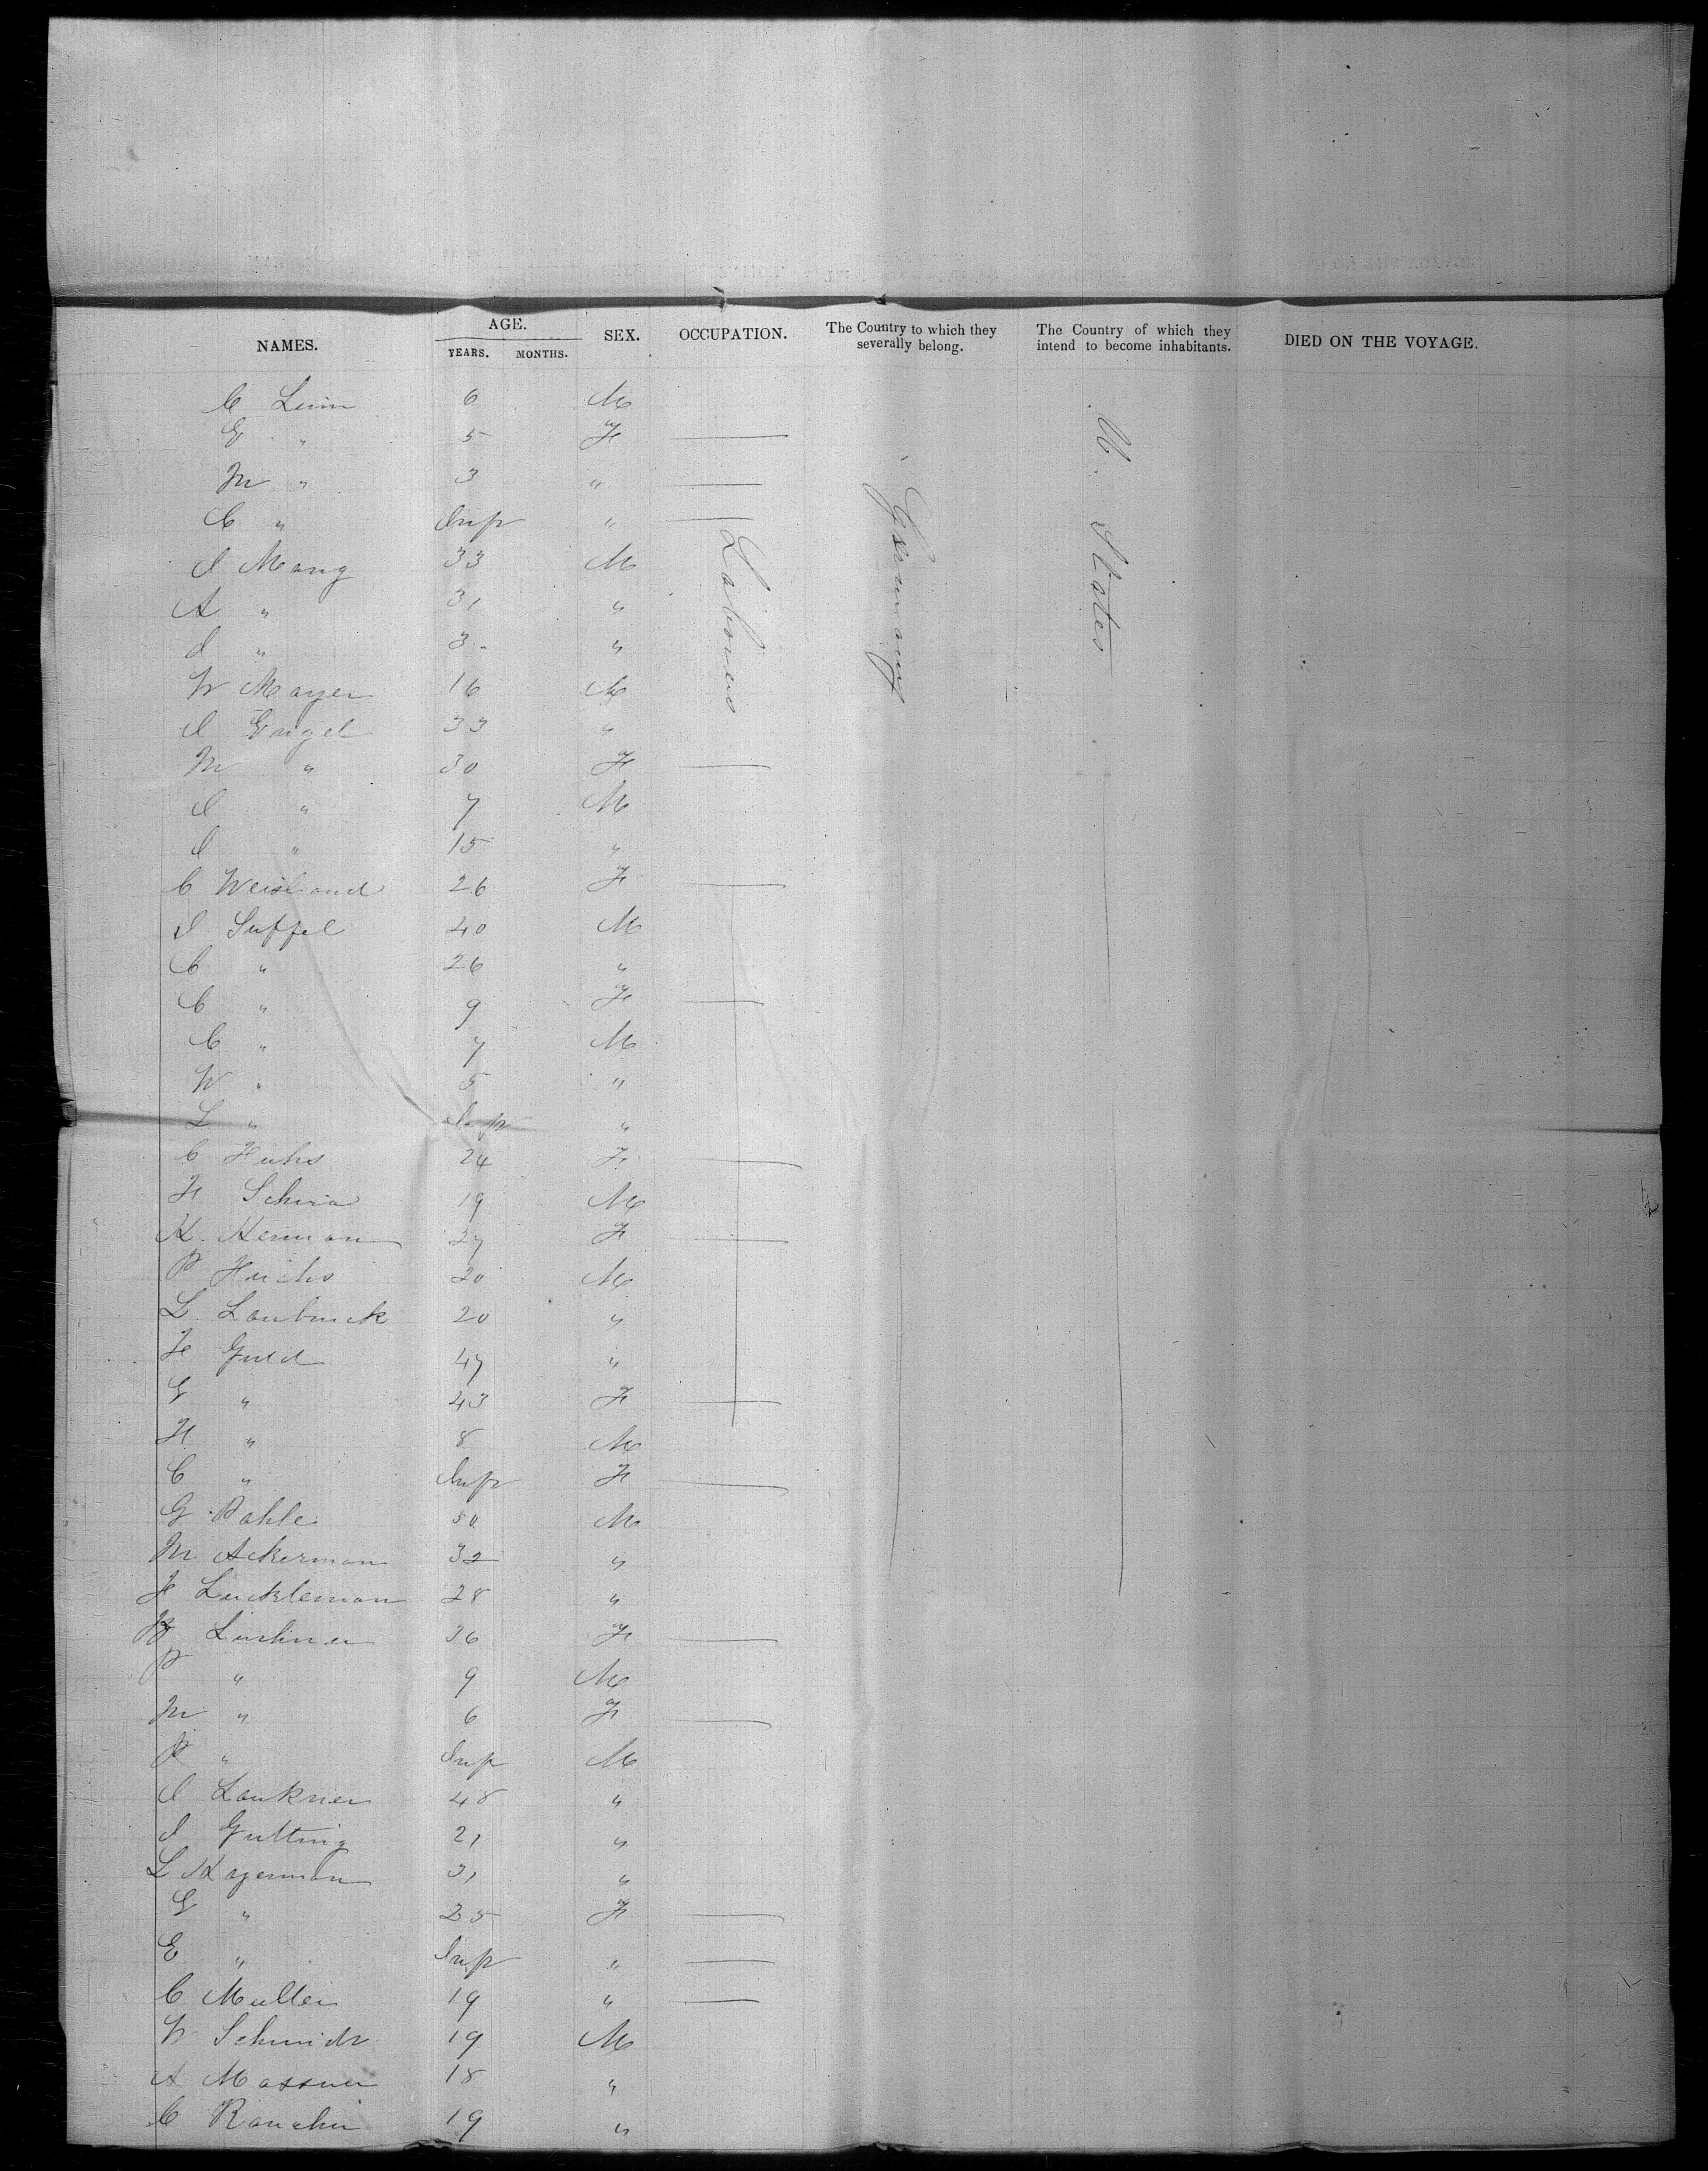 NAMES. AGE. SEX. OCCUPATION. The Country to which they severally belong. The Country of which they intend to become inhabitants. DIED ON THE VOYAGE.
YEARS. MONTHS.
Labourers
Germany
U. States
C 6 M
G " 5 F
M " 3 "
C " Inf "
I Mang 33 M
A " 31 "
I " 3 "
W Mayer 16 M
I Engel 33 "
M " 30 F
I " 7 M
I " 15 "
C Weisland 26 F
I Suffel 40 M
C " 26 "
C " 9 F
C " 7 M
W " 5 "
L " Inf "
C 24 F
H 19 M
K. Herman 27 F
P 20 M
L. 20 "
F Guld 47 "
G " 43 F
H " 8 M
C " Inf F
G Pahle 50 M
M Ackerman 32 "
F Luckleman 28 "
36 F
P " 9 M
M " 6 F
P " Inf M
I Laukner 48 "
I Gutting 21 "
L Hagerman 31 "
G " 25 F
E " Inf "
C Muller 19 "
W Schmidt 19 M
A 18 "
C 19 "